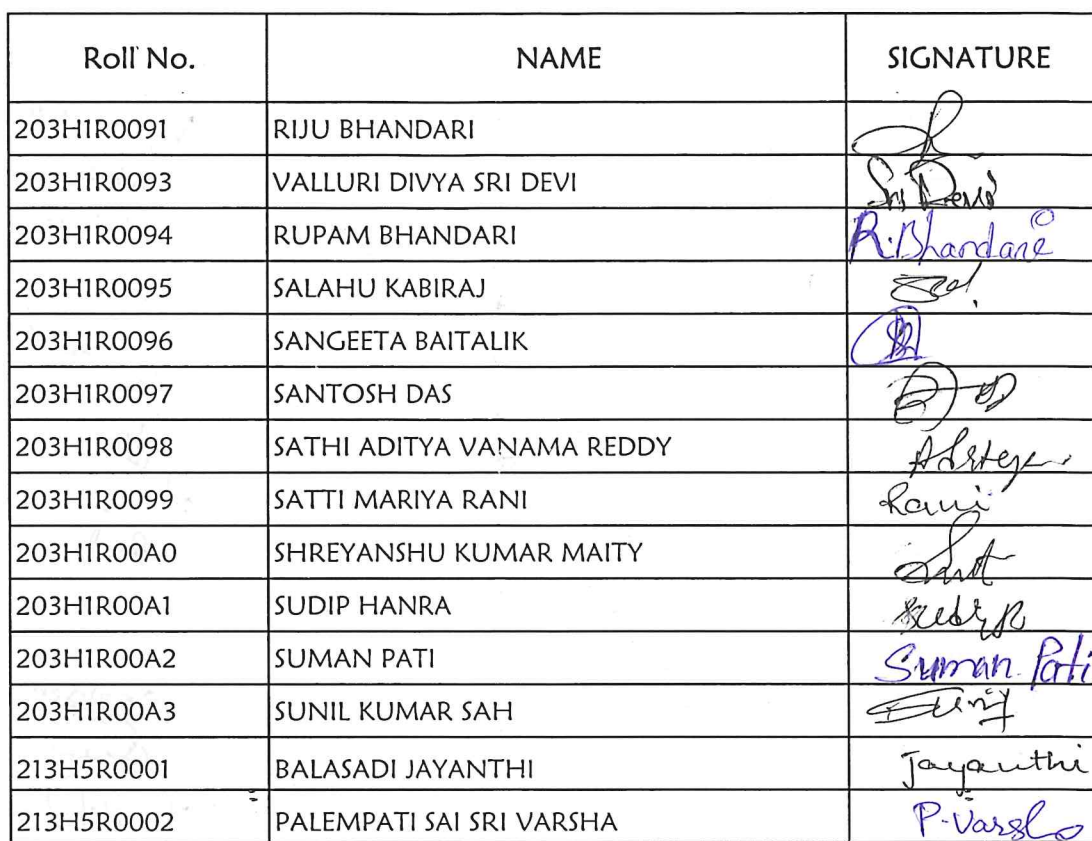 Roll No. NAME SIGNATURE
203H1R0091 RIJU BHANDARI
203H1R0093 VALLURI DIVYA SRI DEVI Sri Devi
203H1R0094 RUPAM BHANDARI R.Bhandari
203H1R0095 SALAHU KABIRAJ
203H1R0096 SANGEETA BAITALIK
203H1R0097 SANTOSH DAS
203H1R0098 SATHI ADITYA VANAMA REDDY
203H1R0099 SATTI MARIYA RANI Rani
203H1R00A0 SHREYANSHU KUMAR MAITY
203H1R00A1 SUDIP HANRA
203H1R00A2 SUMAN PATI Suman Pati
203H1R00A3 SUNIL KUMAR SAH
213H5R0001 BALASADI JAYANTHI Jayanthi
213H5R0002 PALEMPATI SAI SRI VARSHA P.Varsha